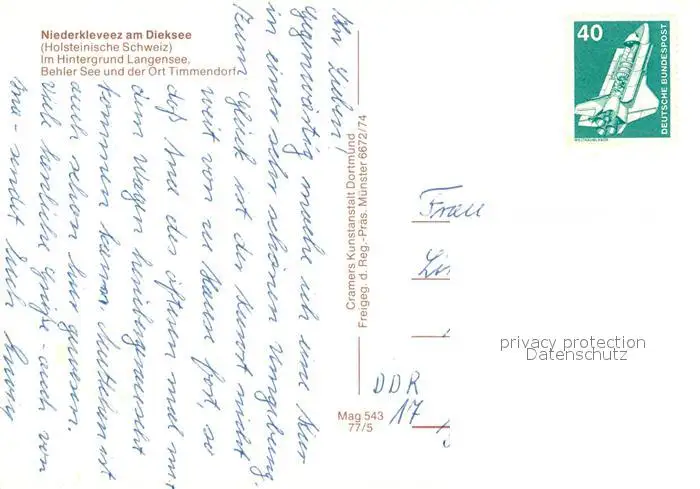 Niederkleveez am Dieksee
(Holsteinische Schweiz)
Im Hintergrund Langensee,
Behler See und der Ort Timmendorf
Ihr Lieben!
Gegenwärtig mache ich eine Kur
in einer sehr schönen Umgebung.
Zum Glück ist der Kurort nicht
weit von zu Hause fort, so
daß des öfteren mal mit
dem Wagen
kommen kann. ist
auch schon hier gewesen.
Viele herzliche Grüße - auch von
- sendet Euch
Cramers Kunstanstalt Dortmund
Freigeg. d. Reg.-Präs. Münster 6672/74
Mag 543
77/5
40
DEUTSCHE BUNDESPOST
Frau
DDR
17
privacy protection
Datenschutz